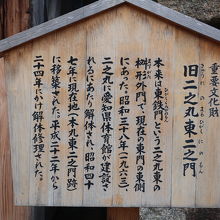 重要文化財
旧二之丸東二之門
きゅうにのまるひがしにのもん
本来は東鉄門という二之丸東の
枡形外門で、現在の東門の東側
にあった。昭和三十八年(一九六三)
二之丸に愛知県体育館が建設さ
れるにあたり解体され、昭和四十
七年に現在地(本丸東二之門跡)
に移築された。平成二十二年から
二十四年にかけ解体修理された。